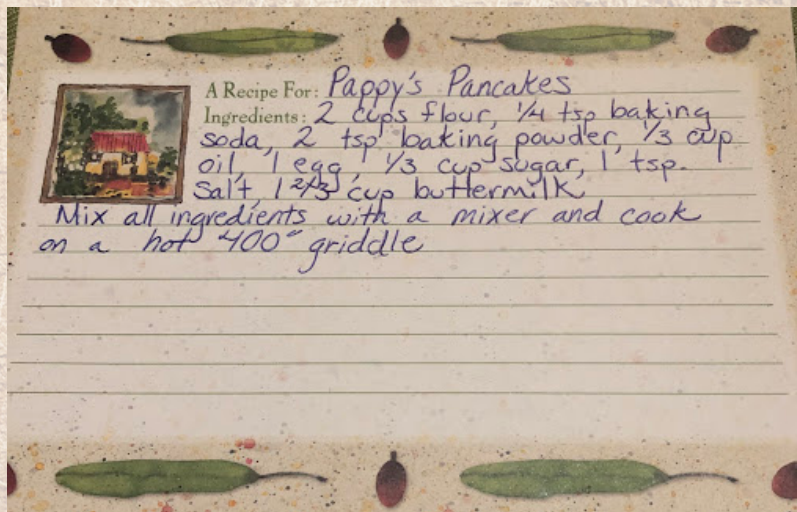 A Recipe For: Pappy's Pancakes
Ingredients: 2 cups flour, 1/4 tsp baking
soda, 2 tsp baking powder, 1/3 cup
oil, 1 egg, 1/3 cup sugar, 1 tsp.
Salt, 1 2/3 cup buttermilk
Mix all ingredients with a mixer and cook
on a hot 400° griddle